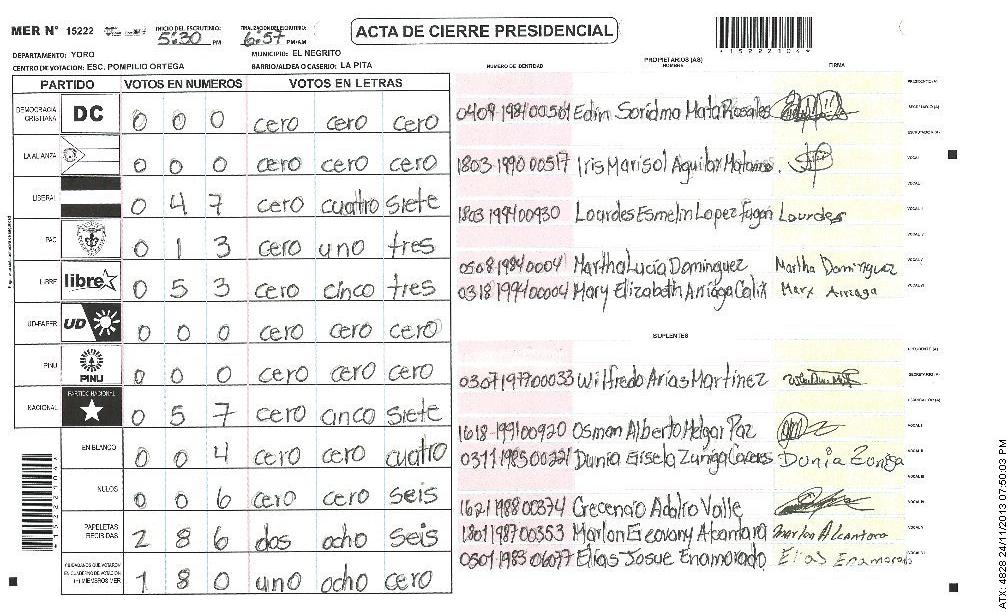 MER N° 15222
INICIO DEL ESCRUTINIO: 5:30 PM
FINALIZACION DEL ESCRUTINIO: 6:57 PM/AM
ACTA DE CIERRE PRESIDENCIAL
DEPARTAMENTO: YORO
MUNICIPIO: EL NEGRITO
CENTRO DE VOTACION: ESC. POMPILIO ORTEGA
BARRIO/ALDEA O CASERIO: LA PITA
PARTIDO VOTOS EN NUMEROS VOTOS EN LETRAS
DEMOCRACIA CRISTIANA DC 0 0 0 cero cero cero
LA ALIANZA 0 0 0 cero cero cero
LIBERAL 0 4 7 cero cuatro siete
PAC 0 1 3 cero uno tres
LIBRE libre 0 5 3 cero cinco tres
UD-FAPER UD 0 0 0 cero cero cero
PINU PINU 0 0 0 cero cero cero
NACIONAL PARTIDO NACIONAL 0 5 7 cero cinco siete
EN BLANCO 0 0 4 cero cero cuatro
NULOS 0 0 6 cero cero seis
PAPELETAS RECIBIDAS 2 8 6 dos ocho seis
CIUDADANOS QUE VOTARON EN CUADERNO DE VOTACION (+) MIEMBROS MER 1 8 0 uno ocho cero
PROPIETARIOS (AS)
NUMERO DE IDENTIDAD NOMBRE FIRMA
Mata Rosales
1803 1990 00517 Iris Marisol Aguilar
1803 1994 00930 Lourdes Lopez Lourdes
Martha Lucía Dominguez Martha Dominguez
0318 1994 00004 Mary Elizabeth
SUPLENTES
0307 1977 00033 Wilfredo Arias Martinez
1618-1991 00920 Osman Alberto Melgar Paz
0311 1985 00221 Dunia Gisela Zuniga Dunia Zuniga
1621 1988 00374 Valle
1801 1987 00353 Marlon Alcantara
0501 1983 06077 Elias Josue Enamorado Elias
ATX: 4828 24/11/2013 07:50:03 PM